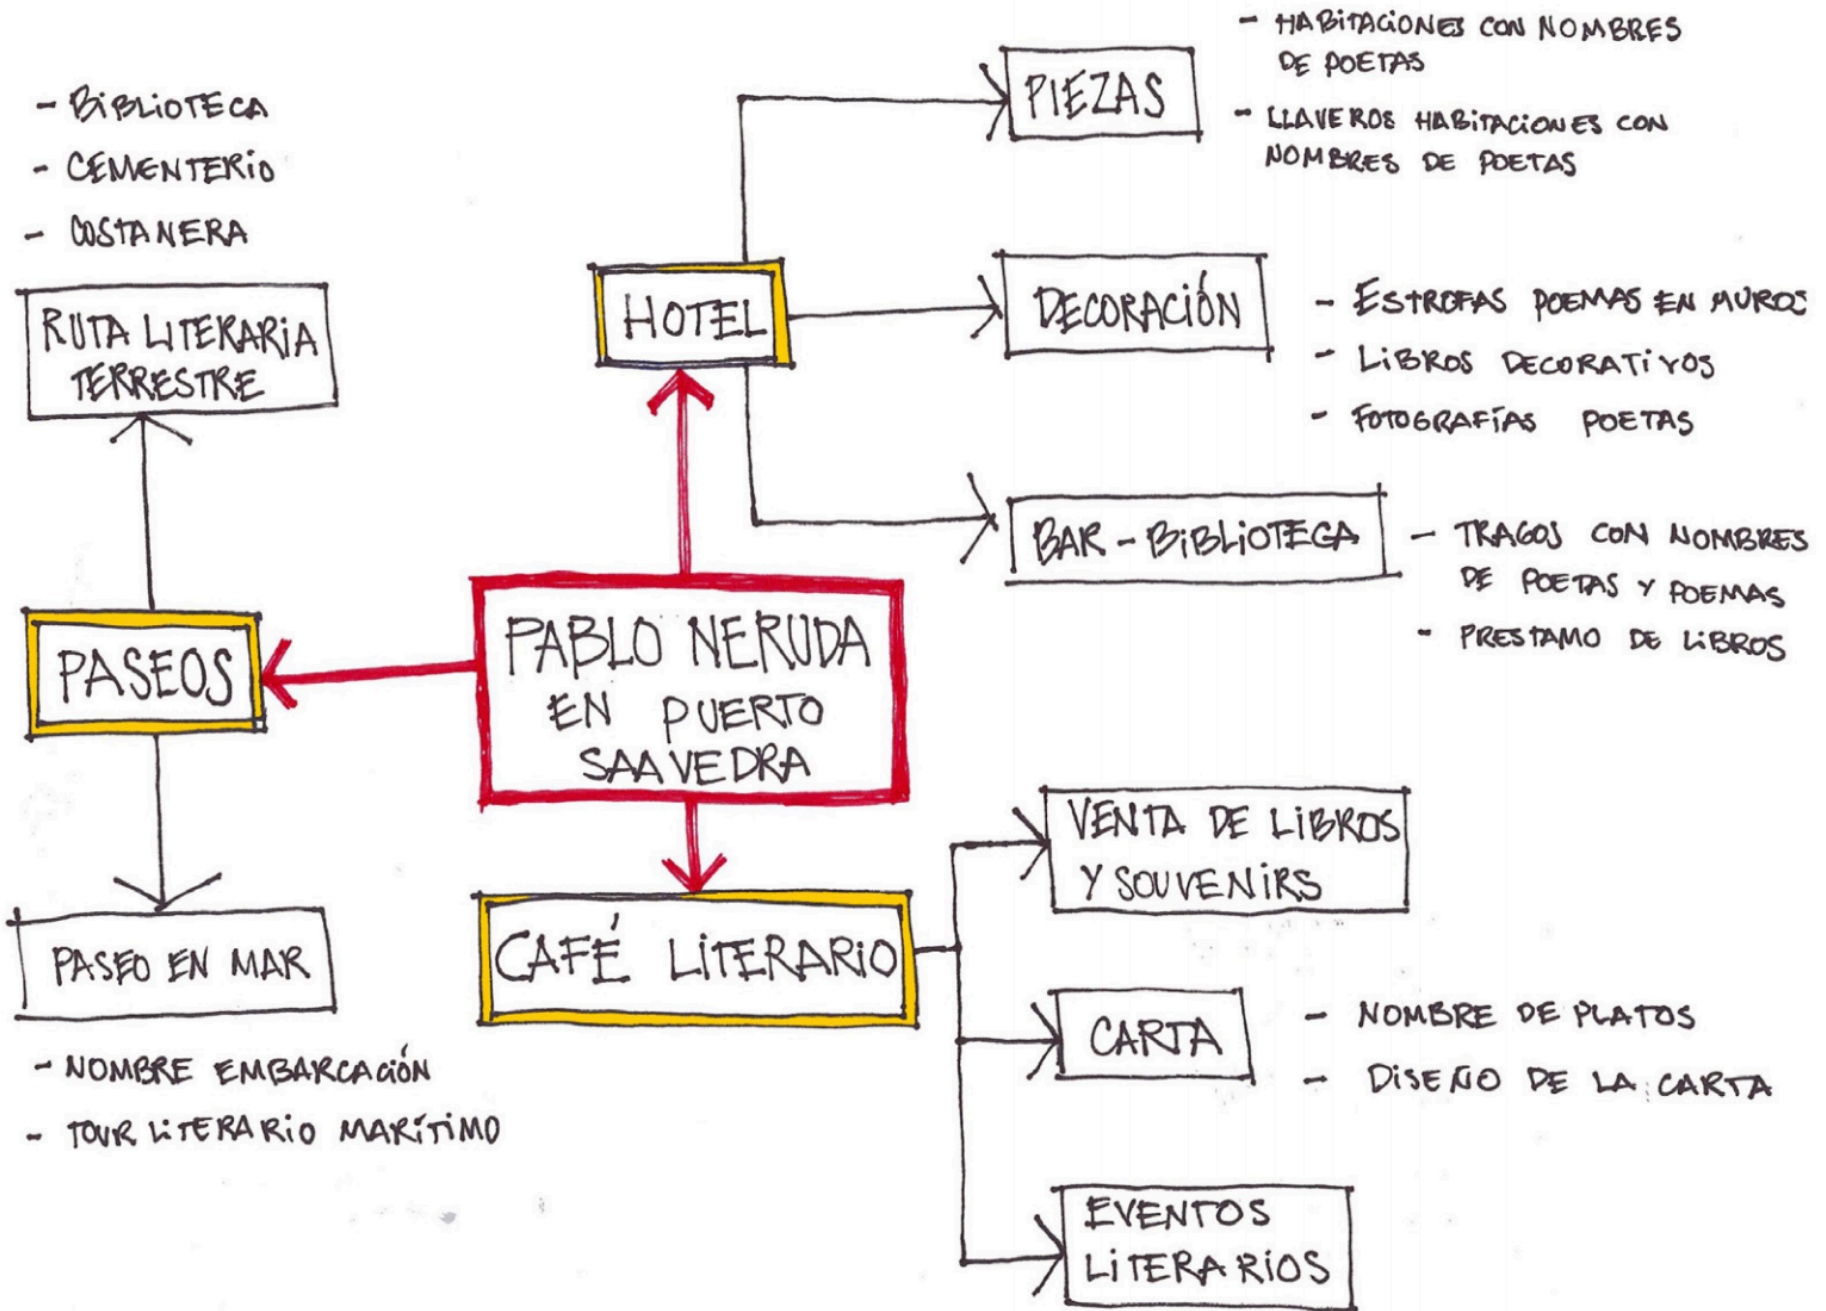 - BIBLIOTECA
- CEMENTERIO
- COSTANERA
RUTA LITERARIA
TERRESTRE
PASEOS
PASEO EN MAR
- NOMBRE EMBARCACIÓN
- TOUR LITERARIO MARÍTIMO
PABLO NERUDA
EN PUERTO
SAAVEDRA
HOTEL
PIEZAS
- HABITACIONES CON NOMBRES
DE POETAS
- LLAVEROS HABITACIONES CON
NOMBRES DE POETAS
DECORACIÓN
- ESTROFAS POEMAS EN MUROS
- LIBROS DECORATIVOS
- FOTOGRAFÍAS POETAS
BAR - BIBLIOTECA
- TRAGOS CON NOMBRES
DE POETAS Y POEMAS
- PRESTAMO DE LIBROS
CAFÉ LITERARIO
VENTA DE LIBROS
Y SOUVENIRS
CARTA
- NOMBRE DE PLATOS
- DISEÑO DE LA CARTA
EVENTOS
LITERARIOS